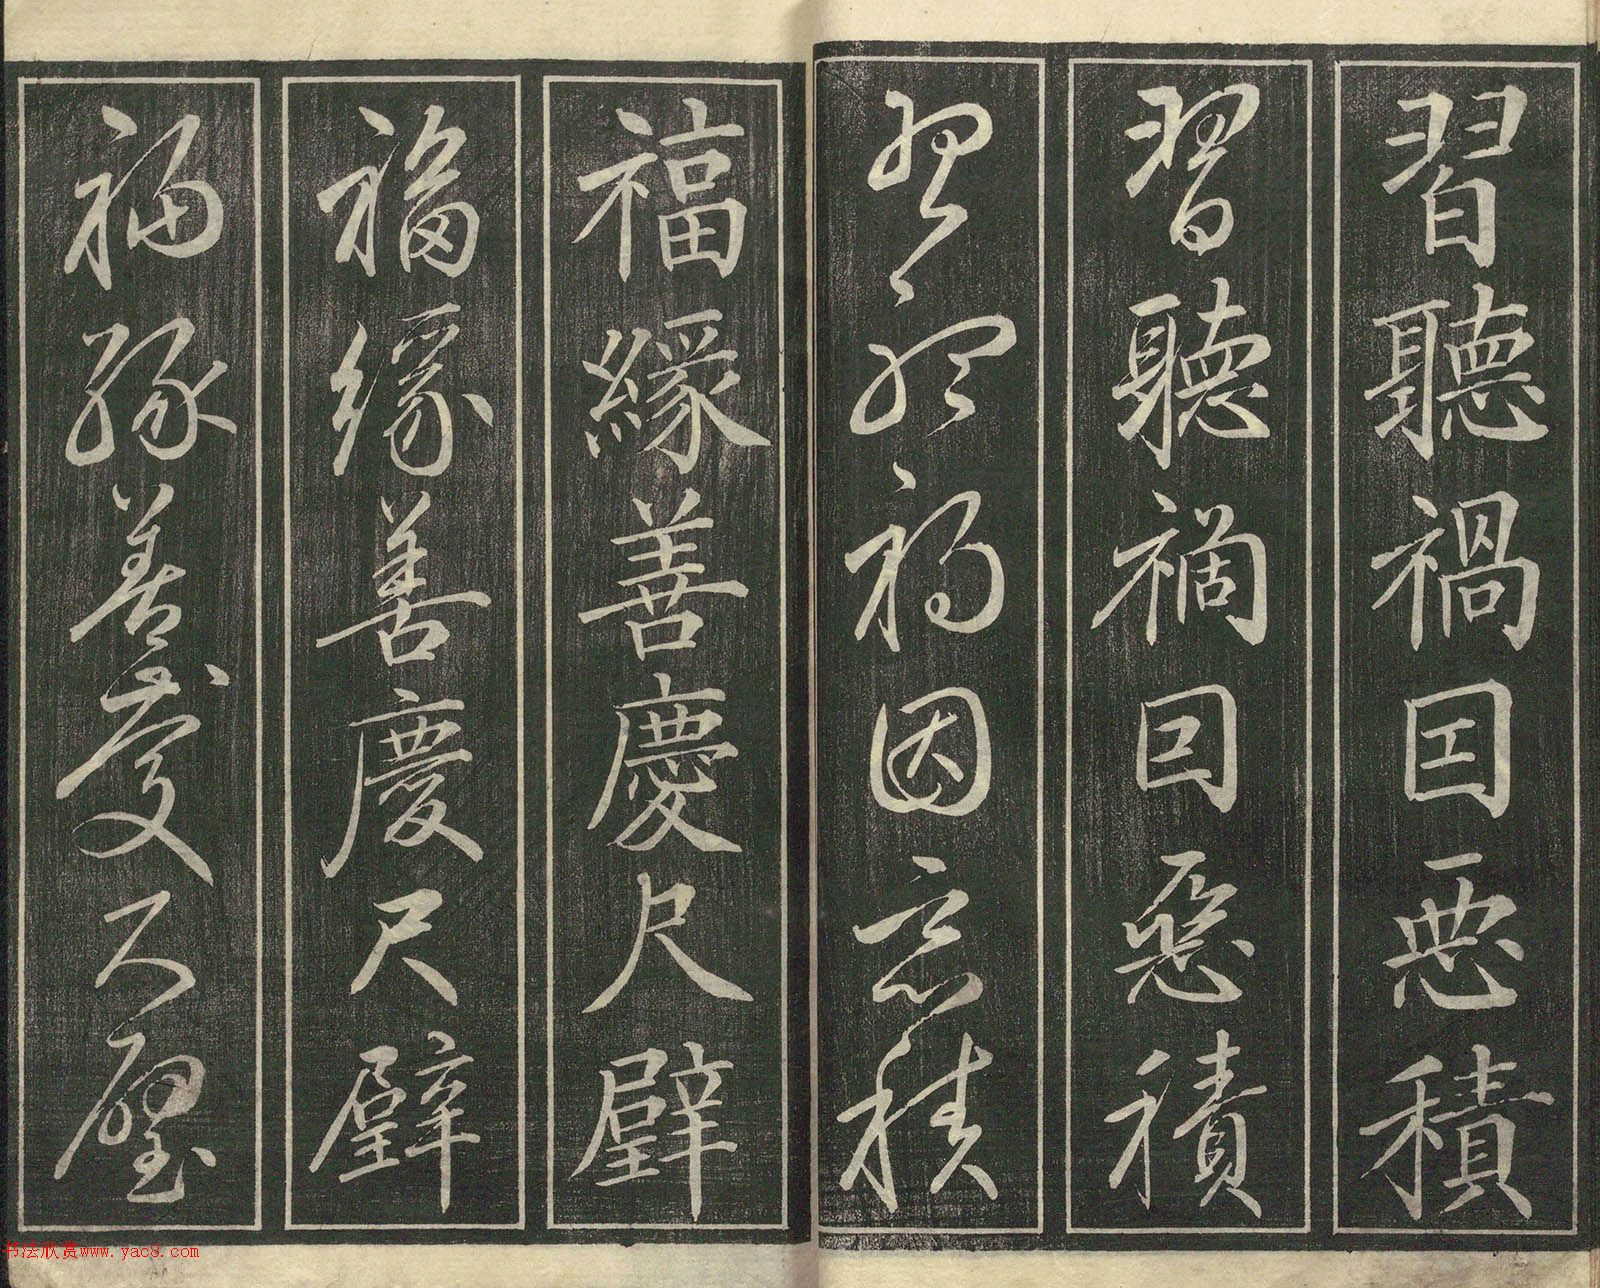 習聽禍因惡積
習聽禍因惡積
習聽禍因惡積
福緣善慶尺璧
福緣善慶尺璧
福緣善慶尺璧
书法欣赏www.yac8.com